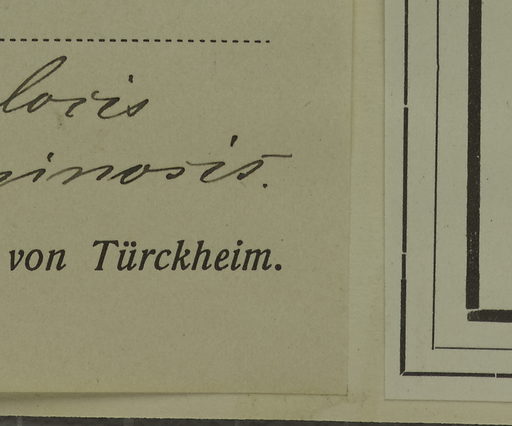 locis
ginosis.
von Türckheim.